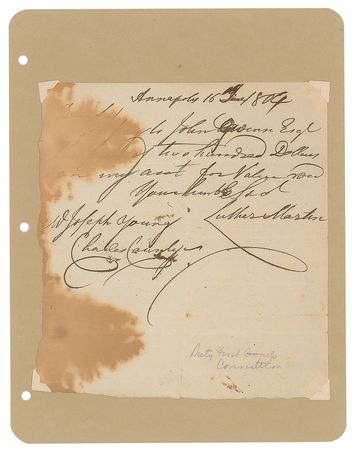 Annapolis 16 June 1804
to John Gwinn Esqr
two hundred Dollars
on my acct for value recd
Your humb Sert
Luther Martin
Mr Joseph Young
Charles County
Convention